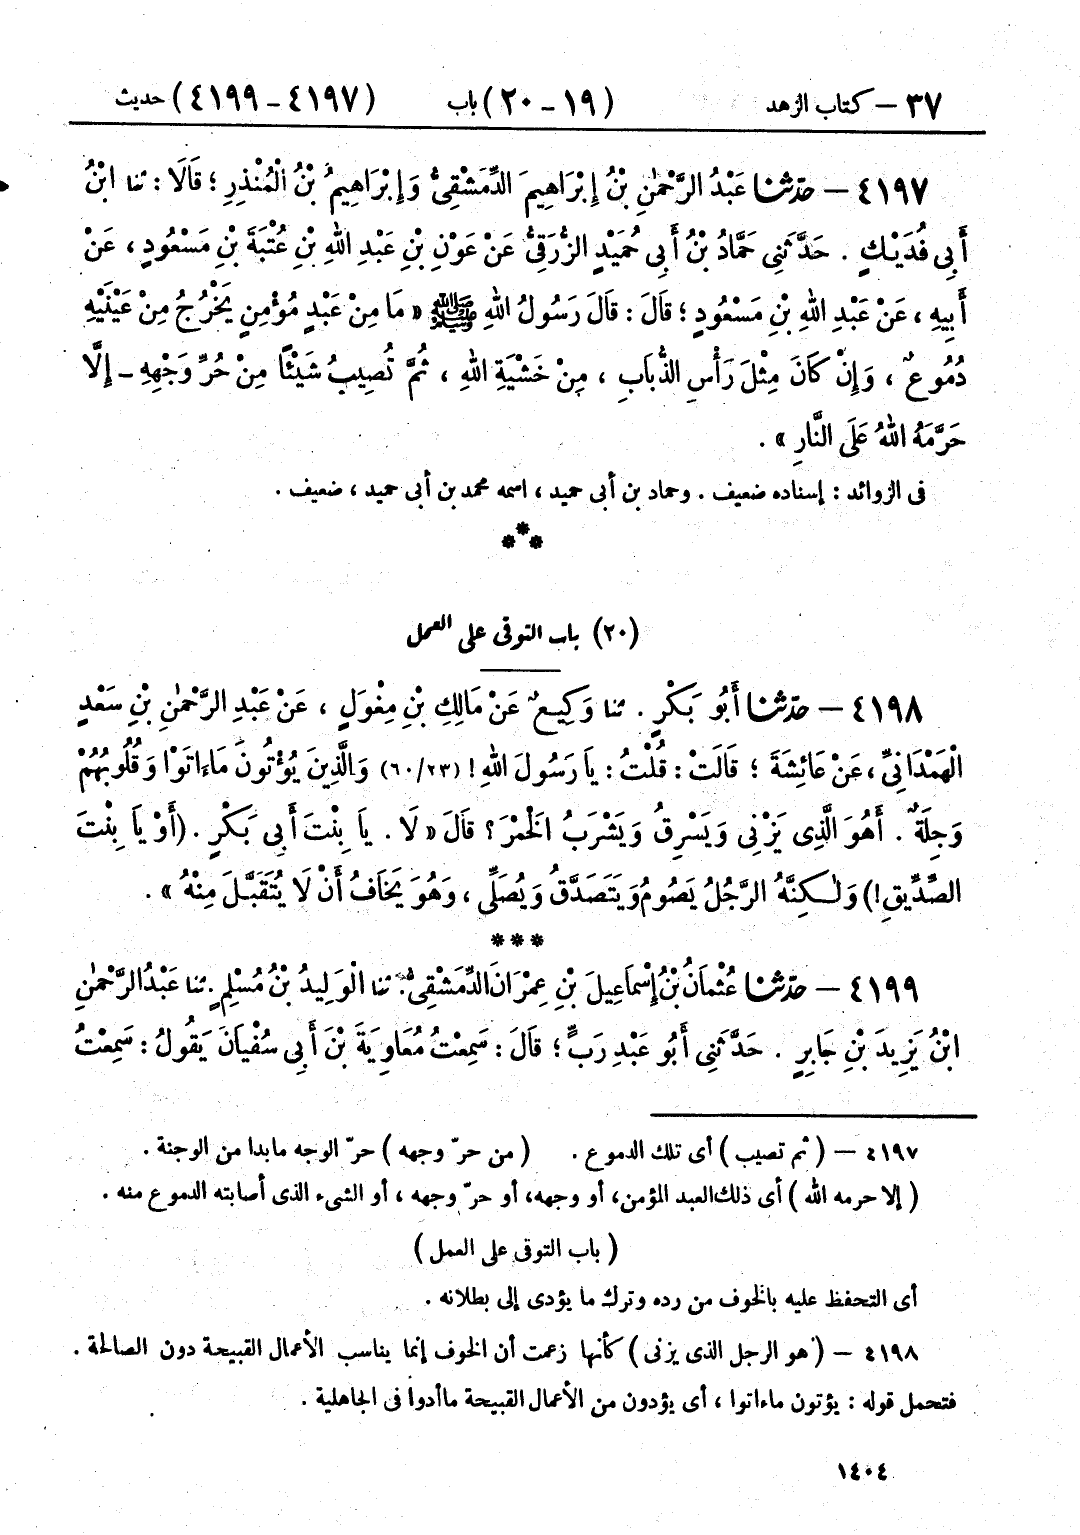 ٣٧ – كتاب الزهد (١٩ – ٢٠) باب (٤١٩٧ – ٤١٩٩) حديث
٤١٩٧ – حدّثنا عَبْدُ الرَّحْمٰنِ بْنُ إِبْرَاهِيمَ الدِّمَشْقِىُّ وَإِبْرَاهِيمُ بْنُ الْمُنْذِرِ ؛ قَالَا : ثنا ابْنُ
أَبِى فُدَيْكٍ . حَدَّثَنِى حَمَّادُ بْنُ أَبِى حُمَيْدٍ الزُّرَقِىُّ عَنْ عَوْنِ بْنِ عَبْدِ اللهِ بْنِ عُتْبَةَ بْنِ مَسْعُودٍ ، عَنْ
أَبِيهِ ، عَنْ عَبْدِ اللهِ بْنِ مَسْعُودٍ ؛ قَالَ : قَالَ رَسُولُ اللهِ ﷺ « مَا مِنْ عَبْدٍ مُؤْمِنٍ يَخْرُجُ مِنْ عَيْنَيْهِ
دُمُوعٌ ، وَإِنْ كَانَ مِثْلَ رَأْسِ الذُّبَابِ ، مِنْ خَشْيَةِ اللهِ ، ثُمَّ تُصِيبُ شَيْئًا مِنْ حُرِّ وَجْهِهِ – إِلَّا
حَرَّمَهُ اللهُ عَلَى النَّارِ » .
فى الزوائد : إسناده ضعيف . وحماد بن أبى حميد ، اسمه محمد بن أبى حميد ، ضعيف .
***
(٢٠) باب التوقى على العمل
٤١٩٨ – حدّثنا أَبُو بَكْرٍ . ثنا وَكِيعٌ عَنْ مَالِكِ بْنِ مِغْوَلٍ ، عَنْ عَبْدِ الرَّحْمٰنِ بْنِ سَعْدٍ
الْهَمْدَانِىِّ ، عَنْ عَائِشَةَ ؛ قَالَتْ : قُلْتُ : يَا رَسُولَ اللهِ ! (٦٠/٢٣) وَالَّذِينَ يُؤْتُونَ مَاءَاتَوْا وَقُلُوبُهُمْ
وَجِلَةٌ . أَهُوَ الَّذِى يَزْنِى وَيَسْرِقُ وَيَشْرَبُ الْخَمْرَ ؟ قَالَ « لَا . يَا بِنْتَ أَبِى بَكْرٍ . (أَوْ يَا بِنْتَ
الصِّدِّيقِ!) وَلٰكِنَّهُ الرَّجُلُ يَصُومُ وَيَتَصَدَّقُ وَيُصَلِّى ، وَهُوَ يَخَافُ أَنْ لَا يُتَقَبَّلَ مِنْهُ » .
***
٤١٩٩ – حدّثنا عُثْمَانُ بْنُ إِسْمَاعِيلَ بْنِ عِمْرَانَ الدِّمَشْقِىُّ. ثنا الْوَلِيدُ بْنُ مُسْلِمٍ . ثنا عَبْدُ الرَّحْمٰنِ
ابْنُ يَزِيدَ بْنِ جَابِرٍ . حَدَّثَنِى أَبُو عَبْدِ رَبٍّ ؛ قَالَ : سَمِعْتُ مُعَاوِيَةَ بْنَ أَبِى سُفْيَانَ يَقُولُ : سَمِعْتُ
٤١٩٧ – ( ثم تصيب ) أى تلك الدموع . ( من حرّ وجهه ) حرّ الوجه مابدا من الوجنة .
( إلا حرمه الله ) أى ذلك العبد المؤمن، أو وجهه، أو حرّ وجهه ، أو الشىء الذى أصابته الدموع منه .
( باب التوقى على العمل )
أى التحفظ عليه بالخوف من رده وترك ما يؤدى إلى بطلانه .
٤١٩٨ – ( هو الرجل الذى يزنى ) كأنها زعمت أن الخوف إنما يناسب الأعمال القبيحة دون الصالحة .
فتحمل قوله : يؤتون ماءاتوا ، أى يؤدون من الأعمال القبيحة ماأدوا فى الجاهلية .
١٤٠٤